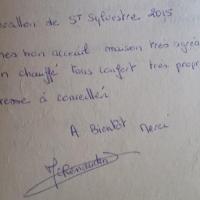 ocation de St Sylvestre 2015
bon accueil maison très agréa
n chauffé tous confort très propr
à conseiller
A Bientôt Merci